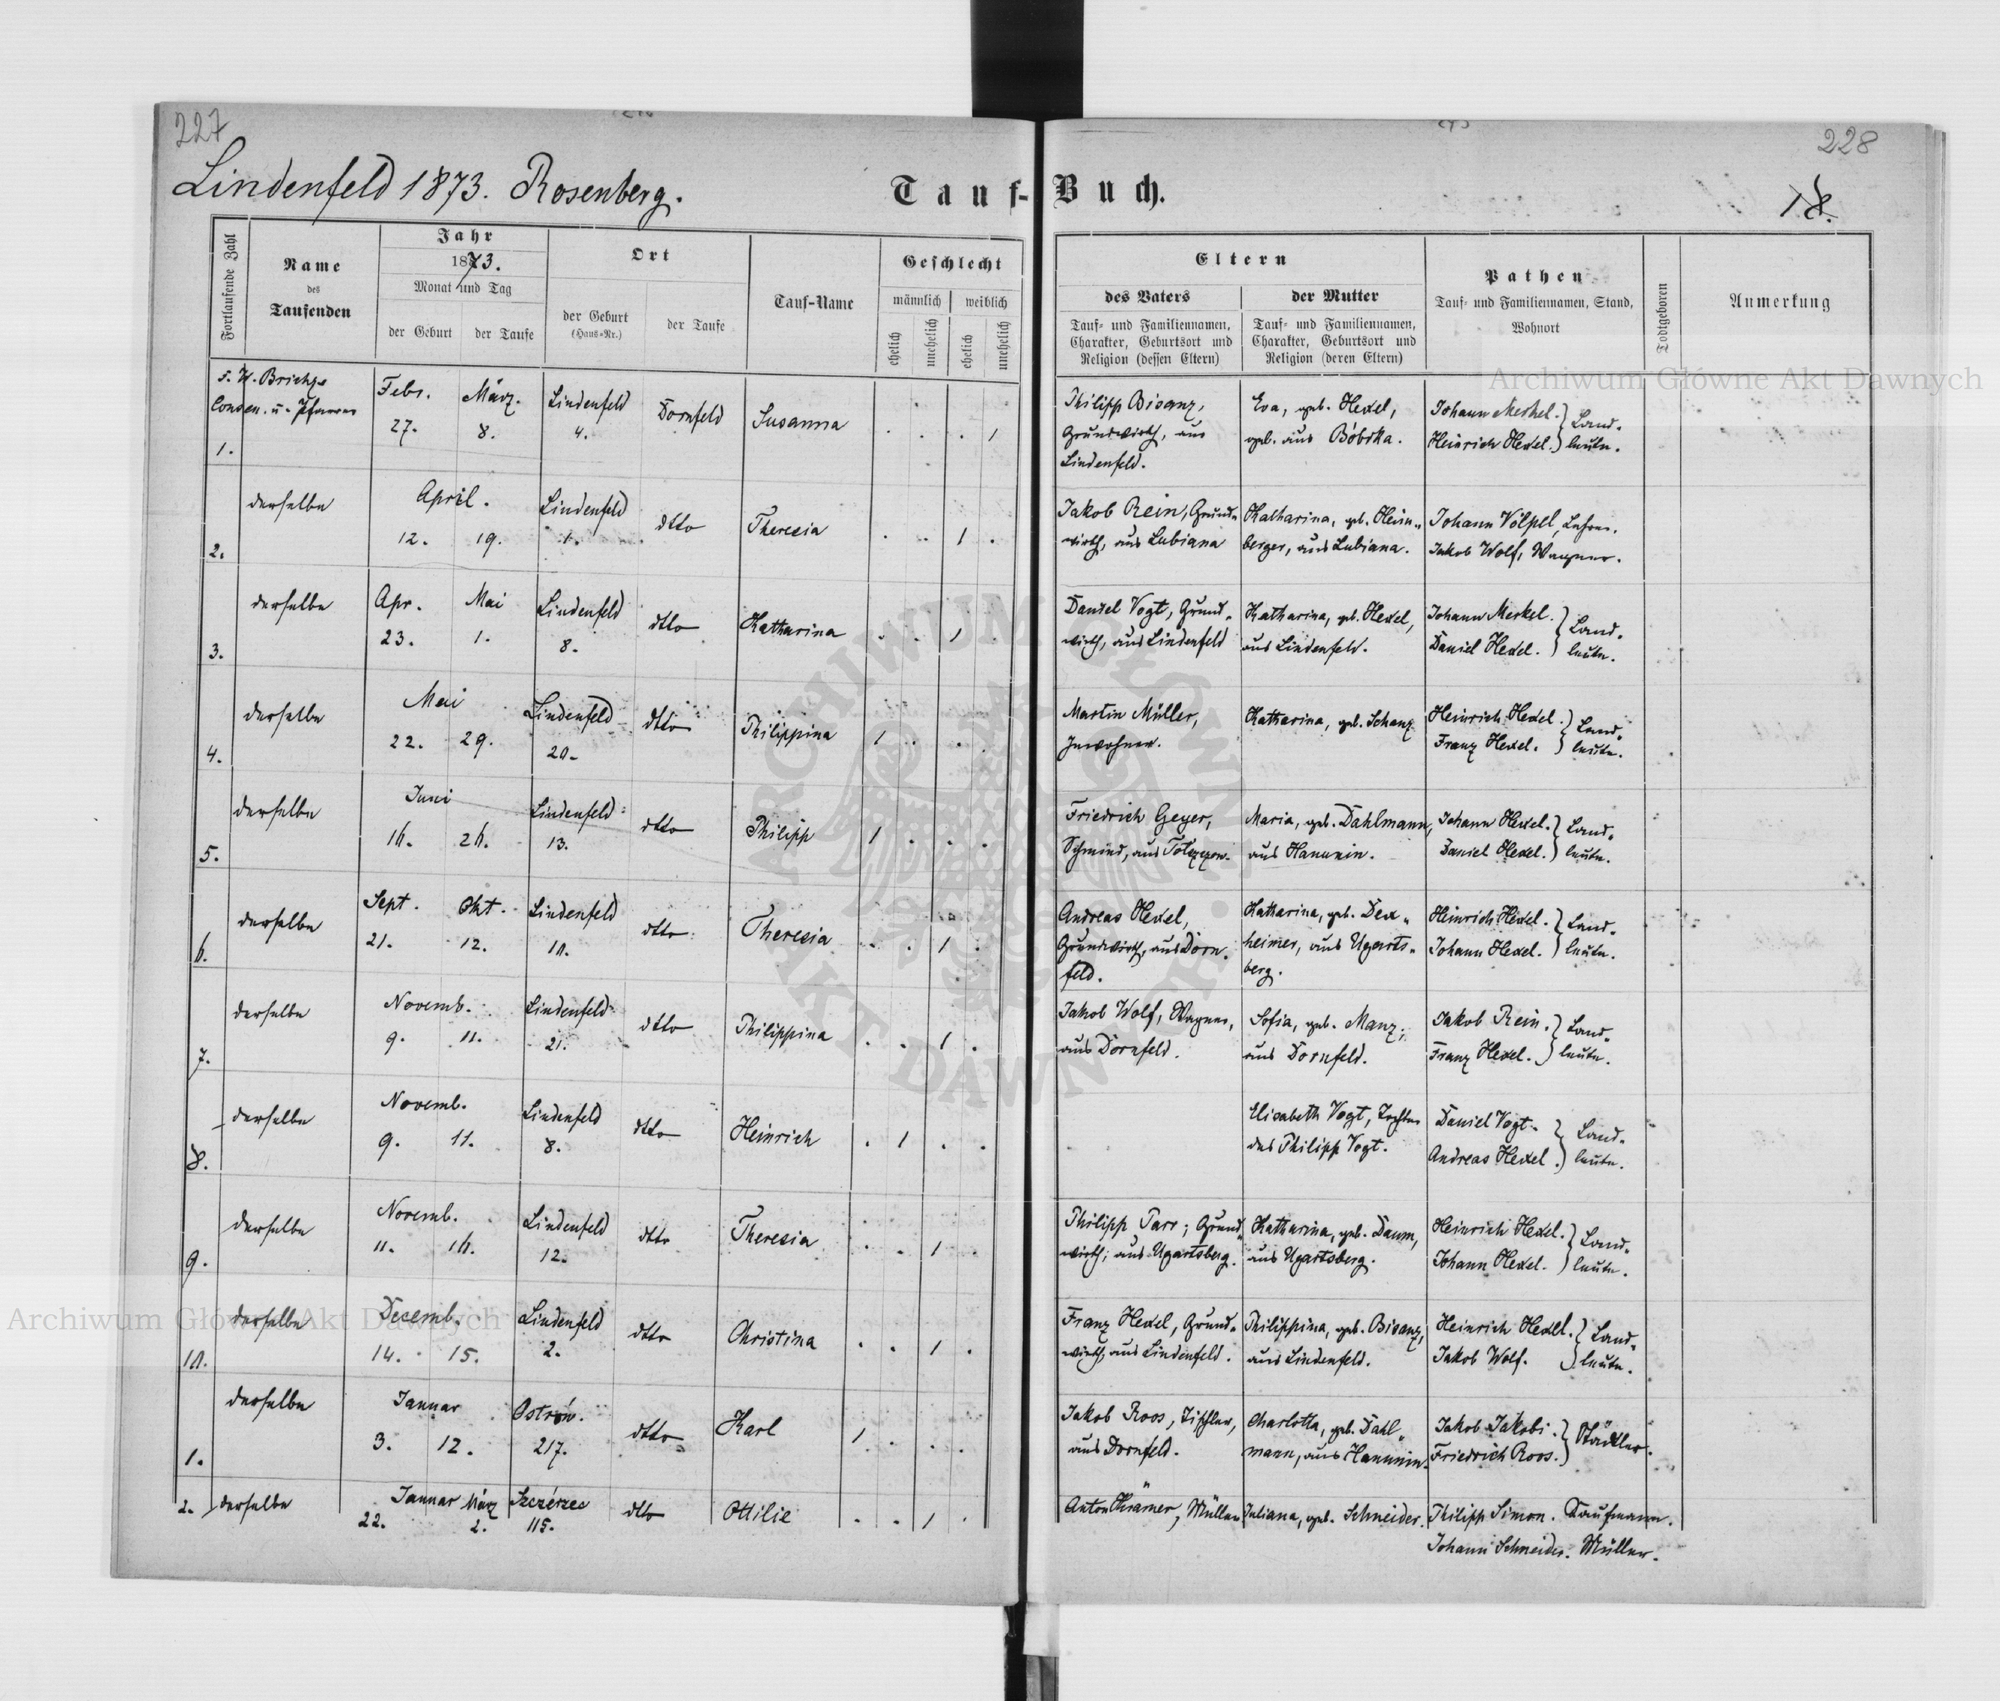 227
228
Lindenfeld 1873. Rosenberg.
Tauf-Buch.
18.
Fortlaufende Zahl
Name
des
Taufenden
Jahr
1873.
Monat und Tag
der Geburt
der Taufe
Ort
der Geburt
(Haus-Nr.)
der Taufe
Tauf-Name
Geschlecht
männlich
weiblich
ehelich
unehelich
ehelich
unehelich
Eltern
des Vaters
Tauf- und Familiennamen,
Charakter, Geburtsort und
Religion (dessen Eltern)
der Mutter
Tauf- und Familiennamen,
Charakter, Geburtsort und
Religion (deren Eltern)
Pathen
Tauf- und Familiennamen, Stand,
Wohnort
Todtgeboren
Anmerkung
1. Febr. 27. März. 8. Lindenfeld 4. Dornfeld Susanna . . . 1
Philipp Bisanz, Grundwirth, aus Lindenfeld.
Eva, geb. Hexel, geb. aus Bóbrka.
Johann Merkel. Heinrich Hexel. } Land-leute.
2. derselbe April. 12. 19. Lindenfeld 1. dtto Theresia . . 1 .
Jakob Rein, Grund-wirth, aus Lubiana
Katharina, geb. Heim-berger, aus Lubiana.
Johann Völpel, Lehrer. Jakob Wolf, Wagner.
3. derselbe Apr. 23. Mai 1. Lindenfeld 8. dtto Katharina . . 1 .
Daniel Vogt, Grund-wirth, aus Lindenfeld
Katharina, geb. Hexel, aus Lindenfeld.
Johann Merkel. Daniel Hexel. } Land-leute.
4. derselbe Mai 22. 29. Lindenfeld 20. dtto Philippina 1 . . .
Martin Müller, Inwohner.
Katharina, geb. Schanz
Heinrich Hexel. Franz Hexel. } Land-leute.
5. derselbe Juni 16. 26. Lindenfeld 13. dtto Philipp 1 . . .
Friedrich Geyer, Schmied, aus
Maria, geb. Dahlmann, aus Hanunin.
Johann Hexel. Daniel Hexel. } Land-leute.
6. derselbe Sept. 21. Okt. 12. Lindenfeld 10. dtto Theresia . . 1 .
Andreas Hexel, Grundwirth, aus Dorn-feld.
Katharina, geb. Dex-heimer, aus Ugarts-berg.
Heinrich Hexel. Johann Hexel. } Land-leute.
7. derselbe Novemb. 9. 11. Lindenfeld 21. dtto Philippina . . 1 .
Jakob Wolf, Wagner, aus Dornfeld.
Sofia, geb. Manz, aus Dornfeld.
Jakob Rein. Franz Hexel. } Land-leute.
8. derselbe Novemb. 9. 11. Lindenfeld 8. dtto Heinrich . 1 . .
Elisabeth Vogt, Tochter des Philipp Vogt.
Daniel Vogt. Andreas Hexel. } Land-leute.
9. derselbe Novemb. 11. 16. Lindenfeld 12. dtto Theresia . . 1 .
Philipp Parr; Grund-wirth; aus Ugartsberg.
Katharina, geb. Daum, aus Ugartsberg.
Heinrich Hexel. Johann Hexel. } Land-leute.
10. derselbe Decemb. 14. 15. Lindenfeld 2. dtto Christina . . 1 .
Franz Hexel, Grund-wirth, aus Lindenfeld.
Philippina, geb. Bisanz, aus Lindenfeld.
Heinrich Hexel. Jakob Wolf. } Land-leute.
1. derselbe Januar 3. 12. Ostrów. 217. dtto Karl 1 . . .
Jakob Roos, Tischler, aus Dornfeld.
Charlotta, geb. Dahl-mann, aus Hanunin.
Jakob Jakobi. Friedrich Roos. }
2. derselbe Januar 22. März 2. Szczérzec 115. dtto Ottilie . . 1 .
Anton Krämer, Müller
Juliana, geb. Schneider.
Philipp Simon. Kaufmann.
Johann Schneider. Müller.
Archiwum Główne Akt Dawnych
Archiwum Główne Akt Dawnych
ARCHIWUM GŁÓWNE AKT DAWNYCH